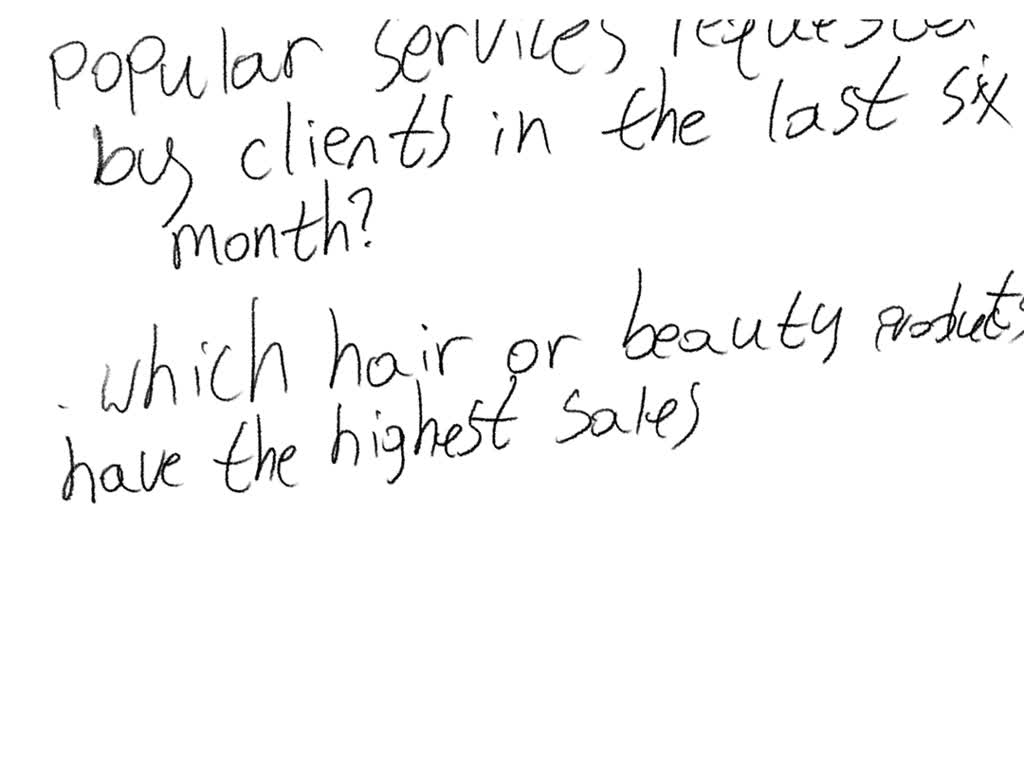 popular services requested
by clients in the last six
month?
. which hair or beauty products
have the highest sales